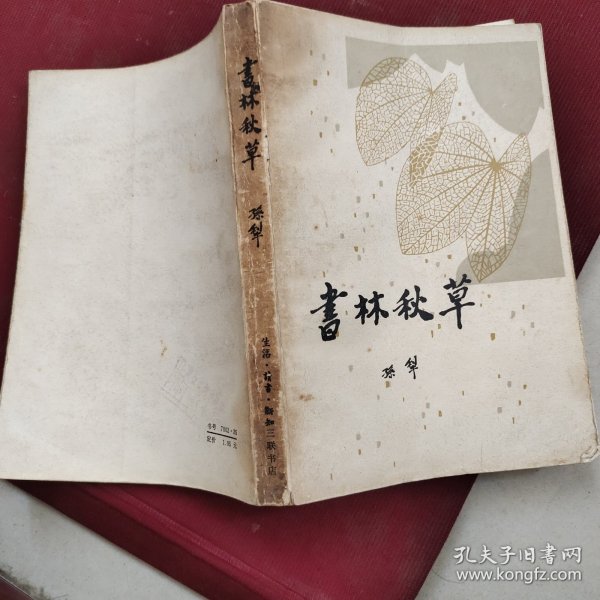 書林秋草
孫犁
生活·讀書·新知三联书店
書林秋草
孫犁
定价 1.95 元
孔夫子旧书网
www.kongfz.com